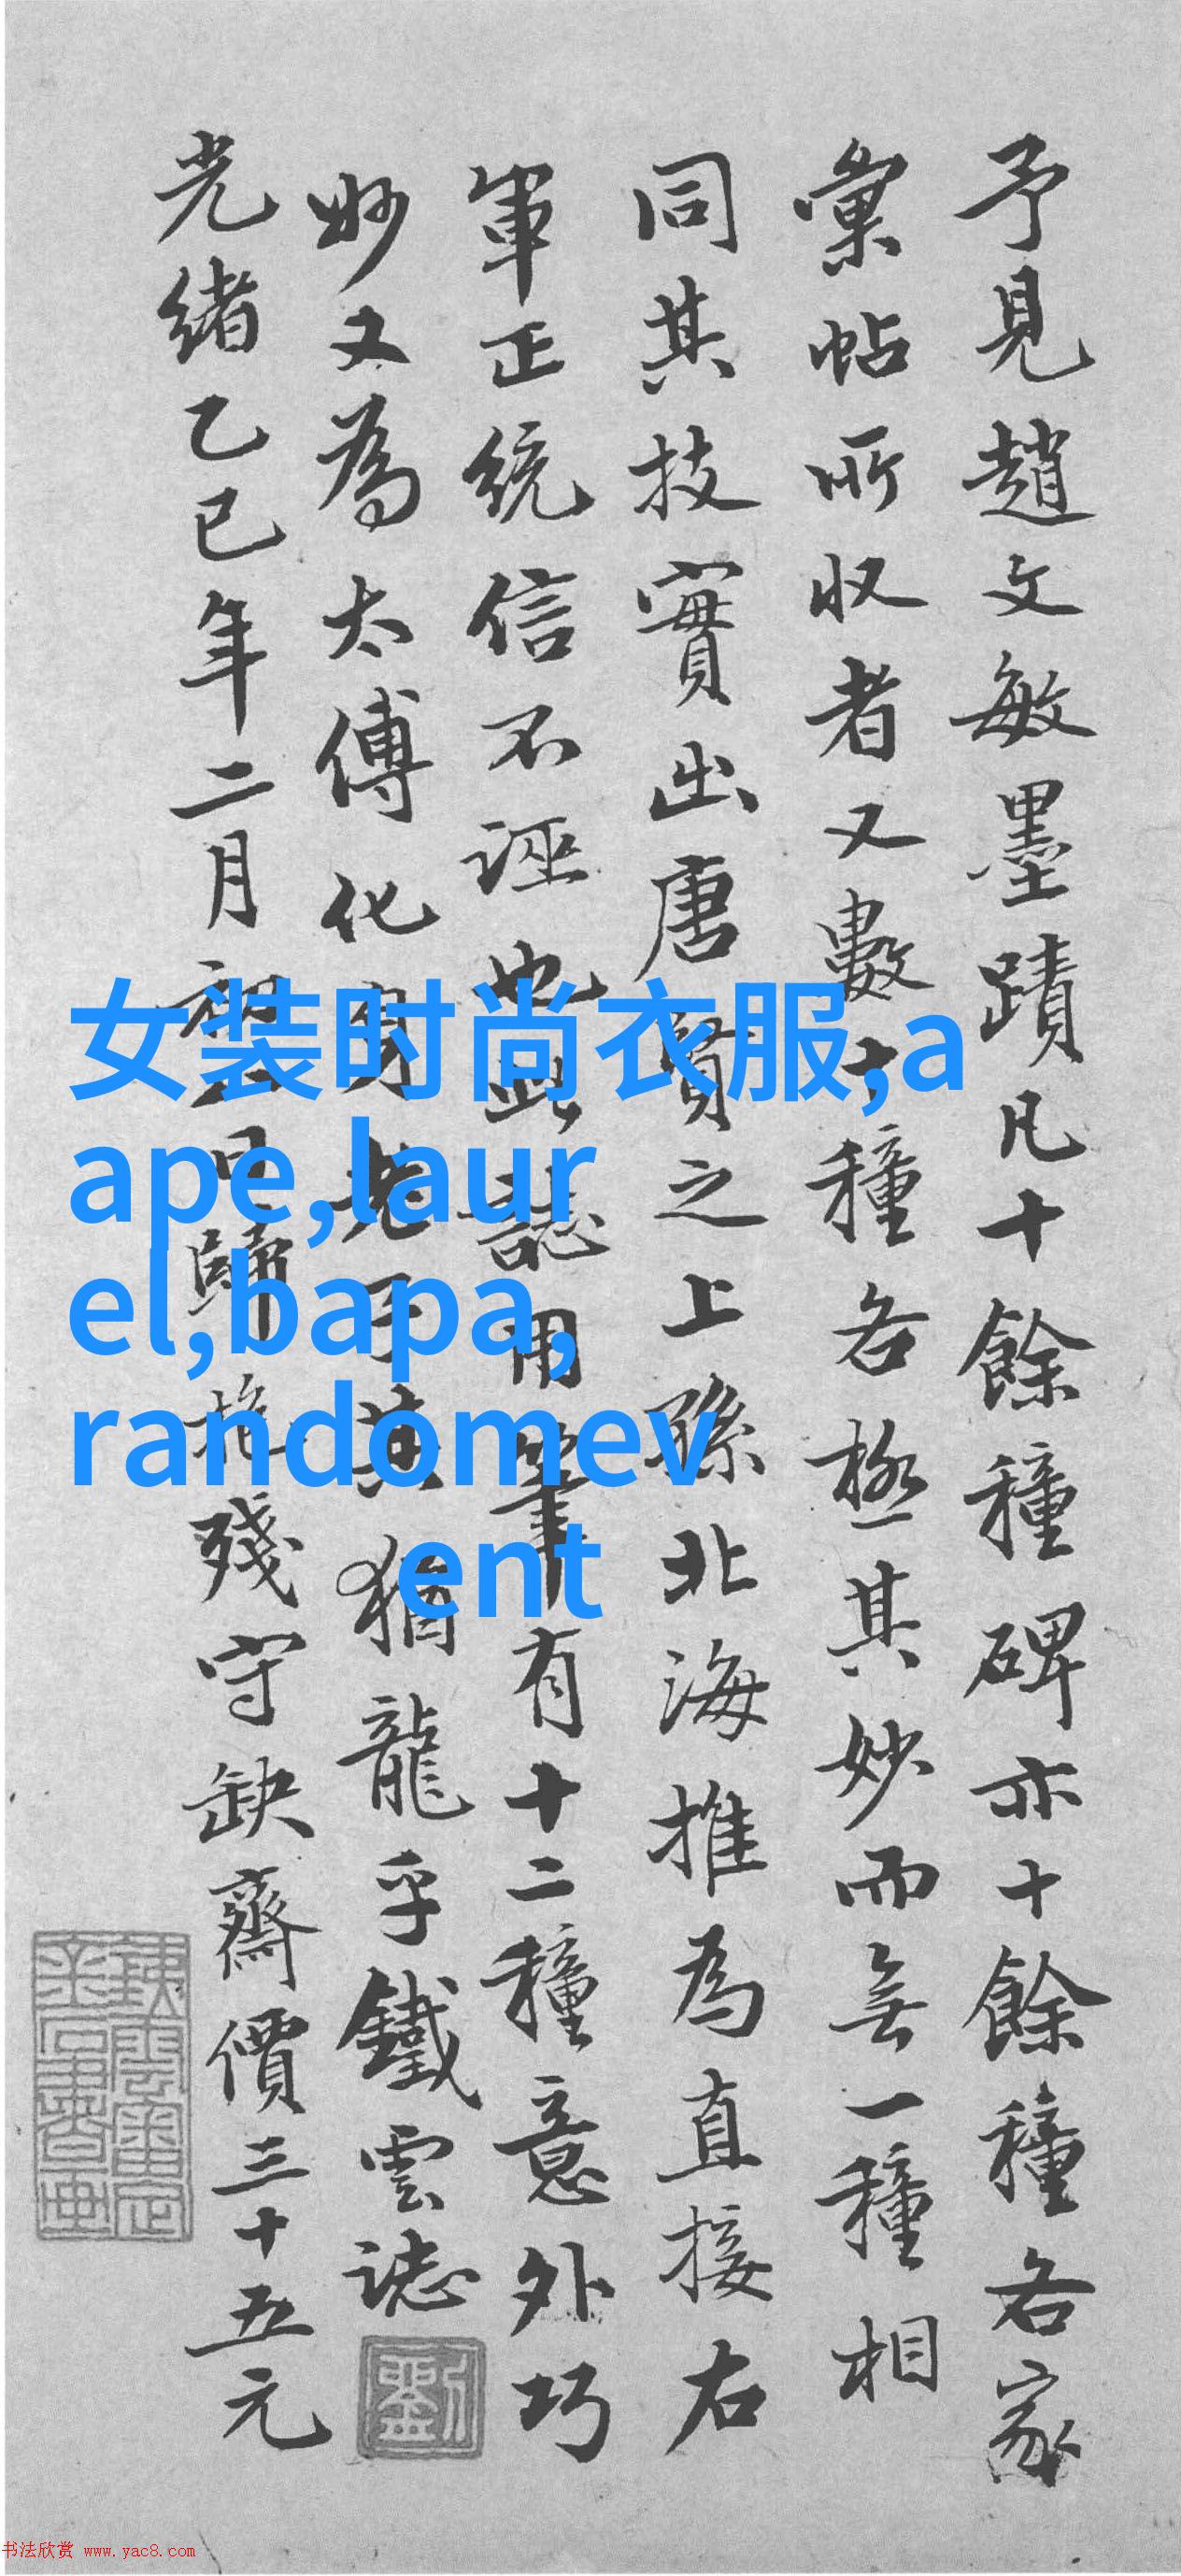 予見趙文敏墨蹟凡十餘種碑亦十餘種各家
彙帖所収者又數十種各極其妙而無一種相
同其技實出唐賢之上孫北海推為直接右
軍正統信不誣也此誌用筆有十二種意外巧
妙又為太傅化身老子其猶龍乎鐵雲誌
光緒乙巳年二月初二日歸抱殘守缺齋價三十五元
劉
女装时尚衣服,a
ape,laur
el,bapa,
randomev
ent
书法欣赏 www.yac8.com